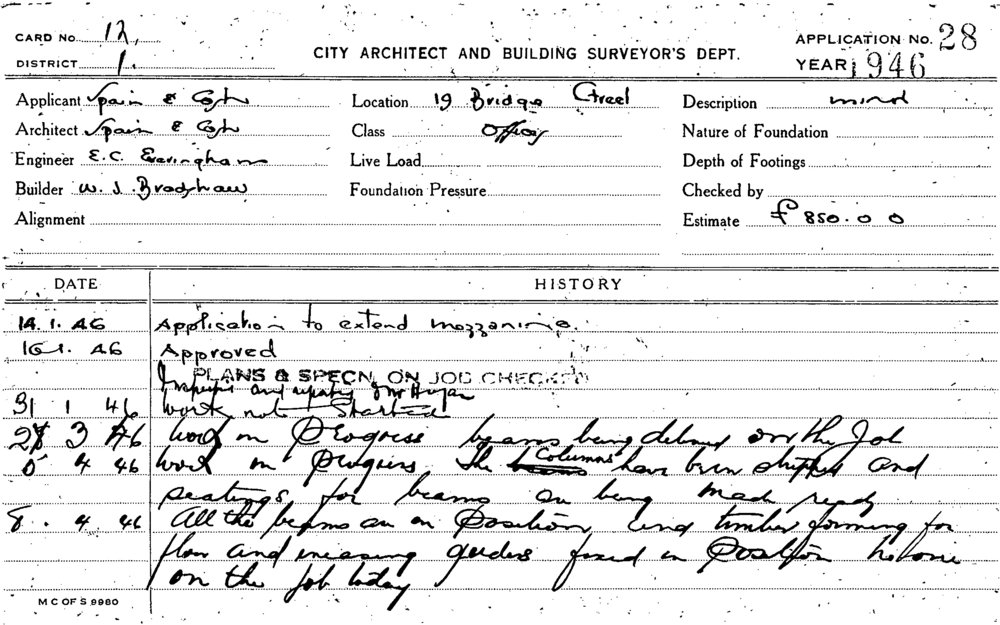 CARD No. 12.
DISTRICT 1.
CITY ARCHITECT AND BUILDING SURVEYOR'S DEPT.
APPLICATION No. 28
YEAR 1946
Applicant Spain & Cosh
Location 19 Bridge Street
Description minor
Architect Spain & Cosh
Class Offices
Nature of Foundation
Engineer E.C. Everingham
Live Load
Depth of Footings
Builder W. J. Bradshaw
Foundation Pressure
Checked by
Alignment
Estimate £ 850.0 0
DATE HISTORY
14.1.46 Application to extend mezzanine.
16.1.46 Approved
PLANS & SPECN. ON JOB CHECKED
Inspection and
31 1 46 Work not Started
28 3 46 Work in Progress beams being on the Job
5 4 46 Work in Progress The Columns have been stripped and
seatings for beams are being made ready
8. 4 46 All the beams are in Position and timber forming for
floor and encasing girders fixed in Position no one
on the job today
M C OF S 9980